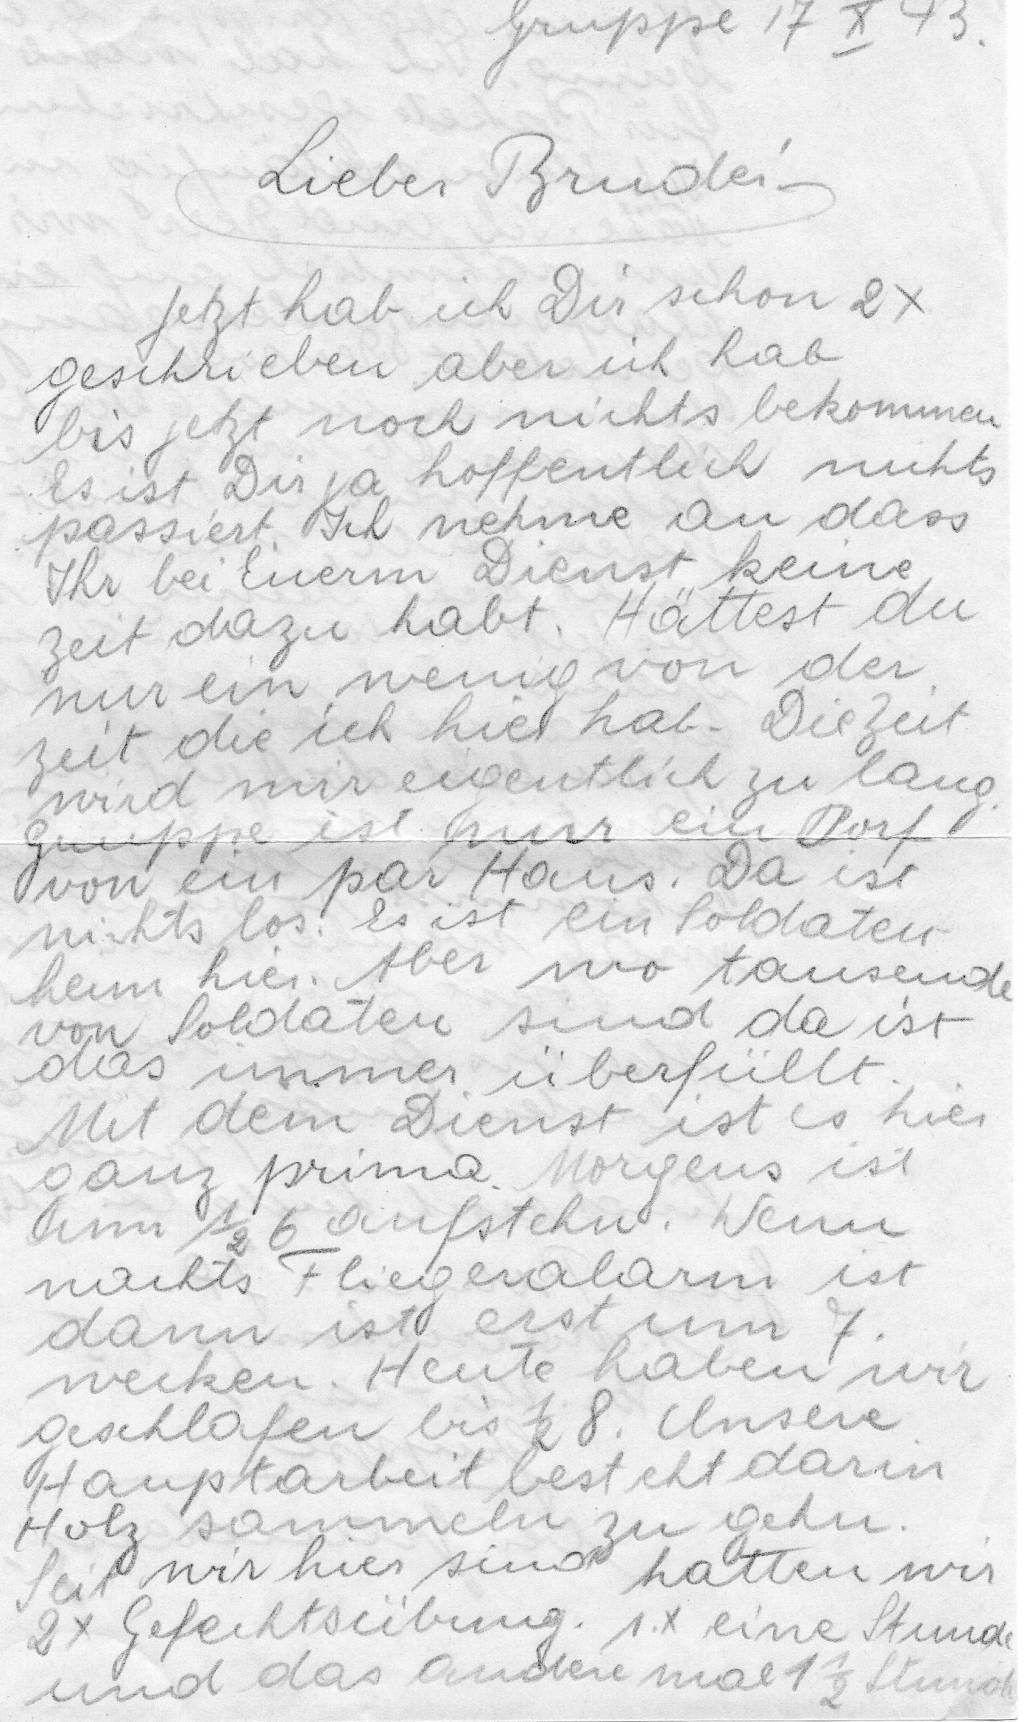 Gruppe 17 X 43.
Lieber Bruder!
Jetzt hab ich Dir schon 2x
geschrieben aber ich hab
bis jetzt noch nichts bekommen
Es ist Dir ja hoffentlich nichts
passiert. Ich nehme an dass
Ihr bei Euerm Dienst keine
zeit dazu habt. Hättest du
nur ein wenig von der
zeit die ich hier hab. Die Zeit
wird mir eigentlich zu lang.
Gruppe ist nur ein Dorf
von ein par Haus. Da ist
nichts los. Es ist ein Soldaten
heim hier. Aber wo tausende
von Soldaten sind da ist
das immer überfüllt.
Mit dem Dienst ist es hier
ganz prima. Morgens ist
um 1/2 6 aufstehn. Wenn
nachts Fliegeralarm ist
dann ist erst um 7.
wecken. Heute haben wir
geschlafen bis 1/2 8. Unsere
Hauptarbeit besteht darin
Holz sammeln zu gehn.
Seit wir hier sind hatten wir
2x Gefechtsübung. 1.x eine Stunde
und das andere mal 1 1/2 Stunde